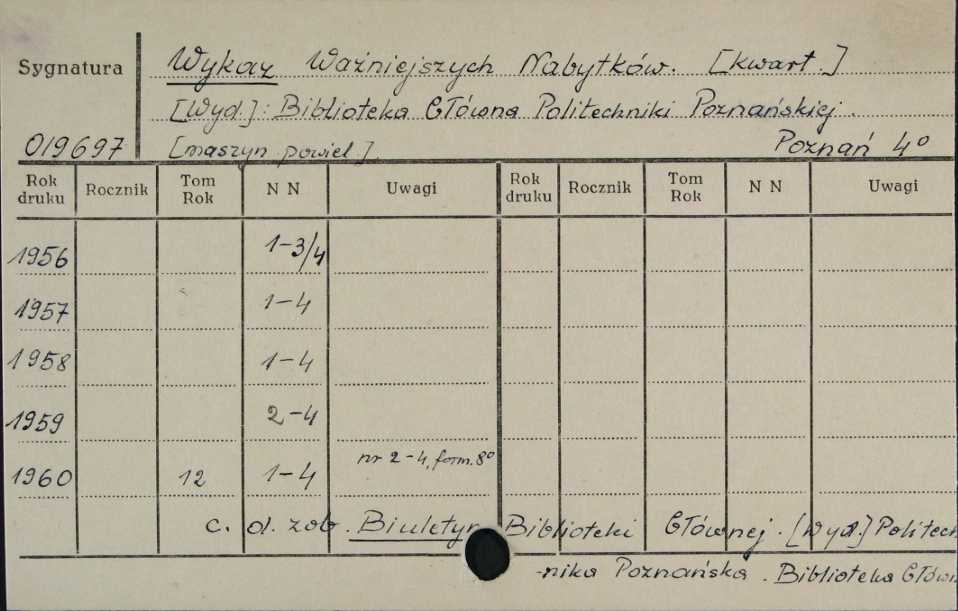 Sygnatura
Wykaz Ważniejszych Nabytków. [kwart.]
[Wyd.]: Biblioteka Główna Politechniki Poznańskiej.
019697 [maszyn powiel] Poznań 4°
Rok druku Rocznik Tom Rok N N Uwagi Rok druku Rocznik Tom Rok N N Uwagi
1956 1-3/4
1957 1-4
1958 1-4
1959 2-4
1960 12 1-4 nr 2-4, form. 8°
c. d. zob. Biuletyn Biblioteki Głównej. [Wyd.] Politech
-nika Poznańska. Biblioteka Główn